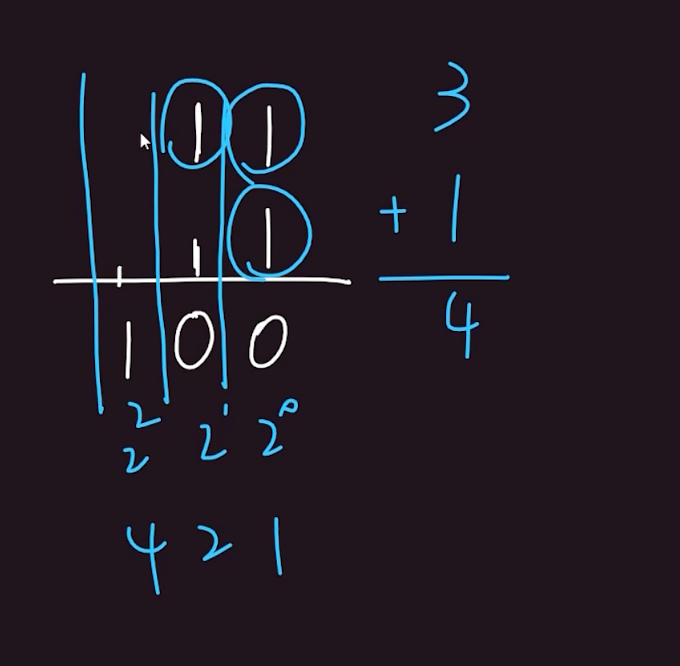 1 1
1 1
1
1 0 0
2² 2¹ 2⁰
4 2 1
3
+ 1
4